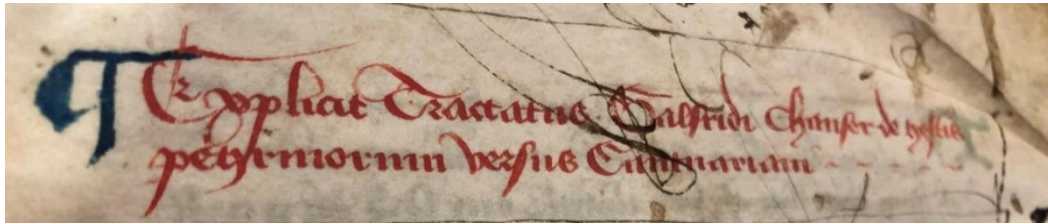 ¶ Explicit Tractatus Galfridi Chauser de gestis
pegrinorum versus Cantuariam